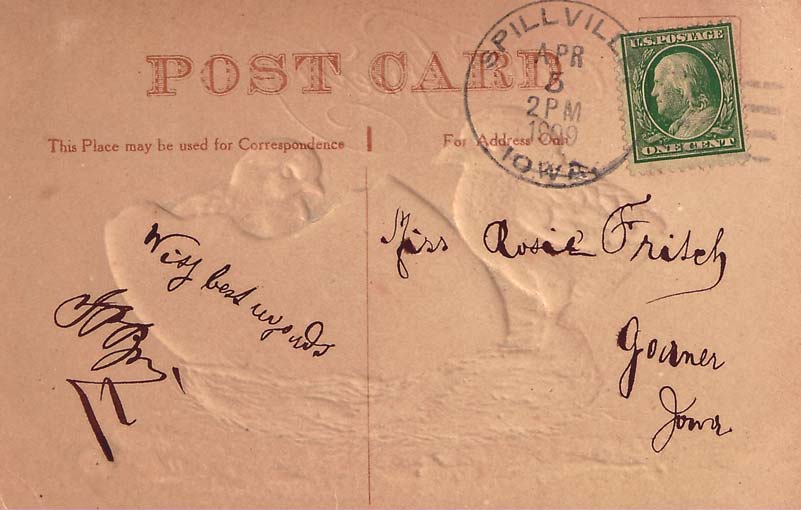 POST CARD
SPILLVILLE
APR
5
2 PM
1909
IOWA
U.S. POSTAGE
ONE CENT
This Place may be used for Correspondence
For Address Only
With best regards
Miss Rosie Fritsch
Garner
Iowa